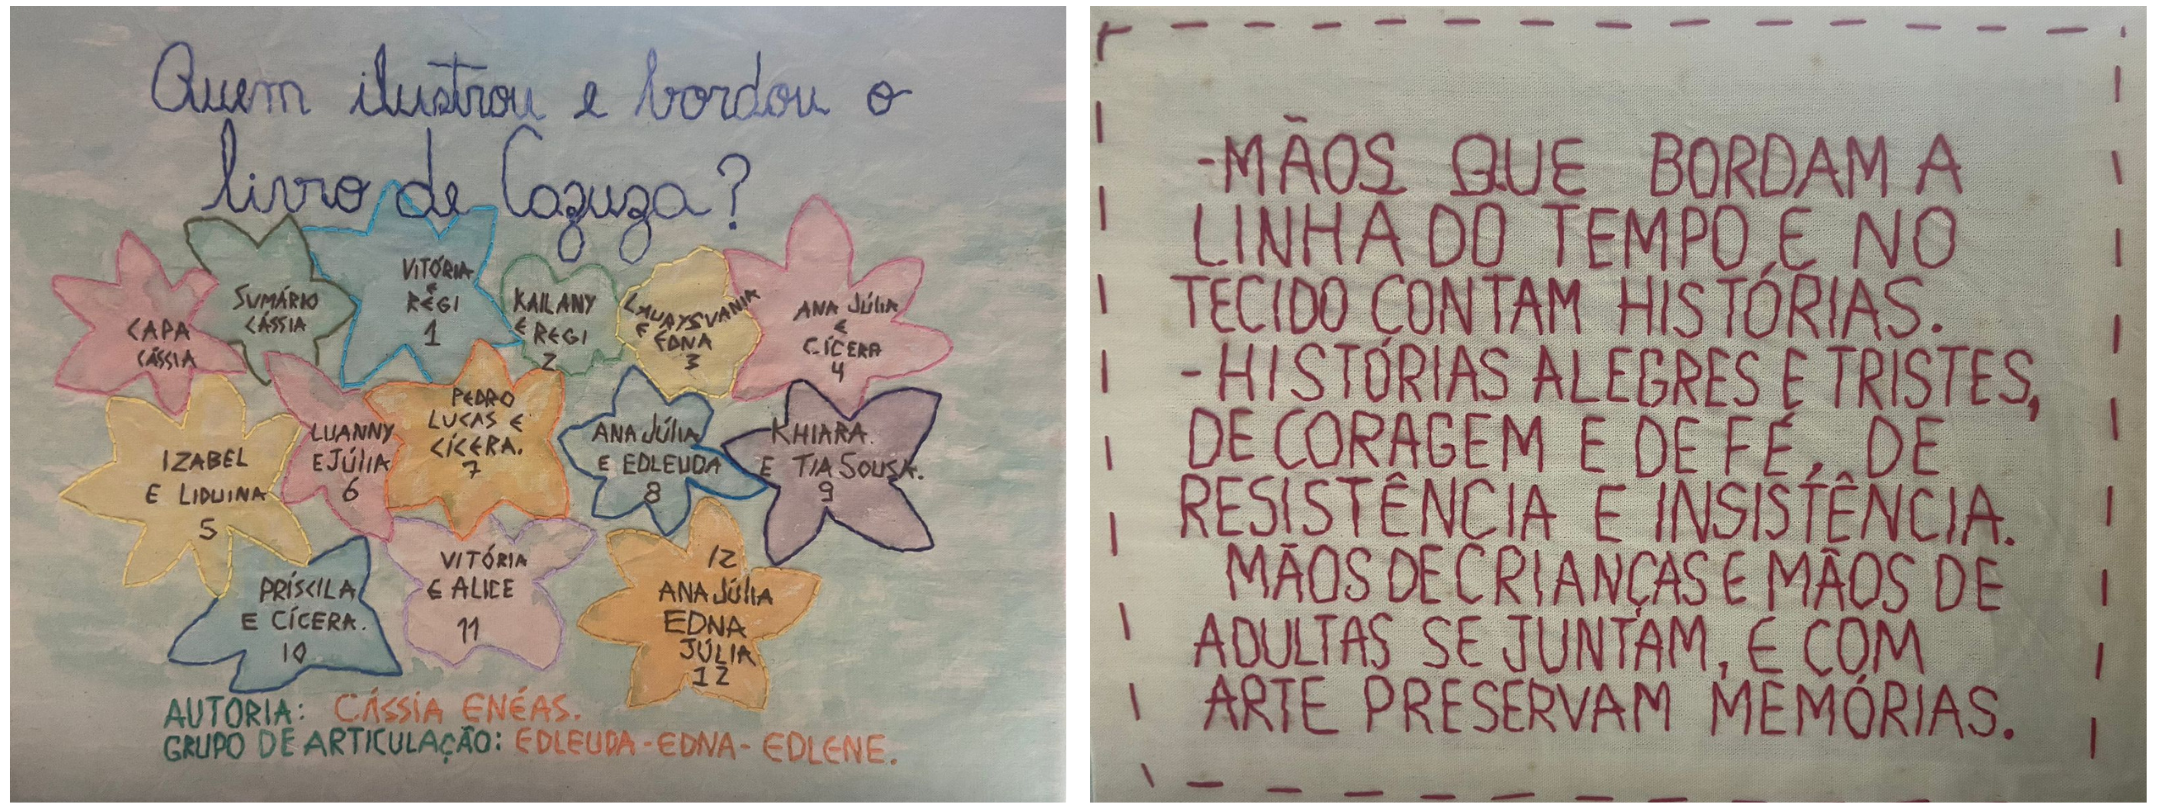 Quem ilustrou e bordou o
livro de Cazuza?
CAPA
CÁSSIA
SUMÁRIO
CÁSSIA
VITÓRIA
E
REGI
1
KAILANY
E REGI
2
E EDNA
3
ANA JÚLIA
E
CÍCERA
4
IZABEL
E LIDUINA
5
LUANNY
E JÚLIA
6
PEDRO
LUCAS E
CÍCERA.
7
ANA JÚLIA
E EDLEUDA
8
KHIARA
E TIA SOUSA.
9
PRÍSCILA
E CÍCERA.
10
VITÓRIA
E ALICE
11
12
ANA JÚLIA
EDNA
JÚLIA
12
AUTORIA: CÁSSIA ENÉAS.
GRUPO DE ARTICULAÇÃO: EDLEUDA - EDNA - EDLENE.
-MÃOS QUE BORDAM A
LINHA DO TEMPO E NO
TECIDO CONTAM HISTÓRIAS.
-HISTÓRIAS ALEGRES E TRISTES,
DE CORAGEM E DE FÉ, DE
RESISTÊNCIA E INSISTÊNCIA.
MÃOS DE CRIANÇAS E MÃOS DE
ADULTAS SE JUNTAM, E COM
ARTE PRESERVAM MEMÓRIAS.